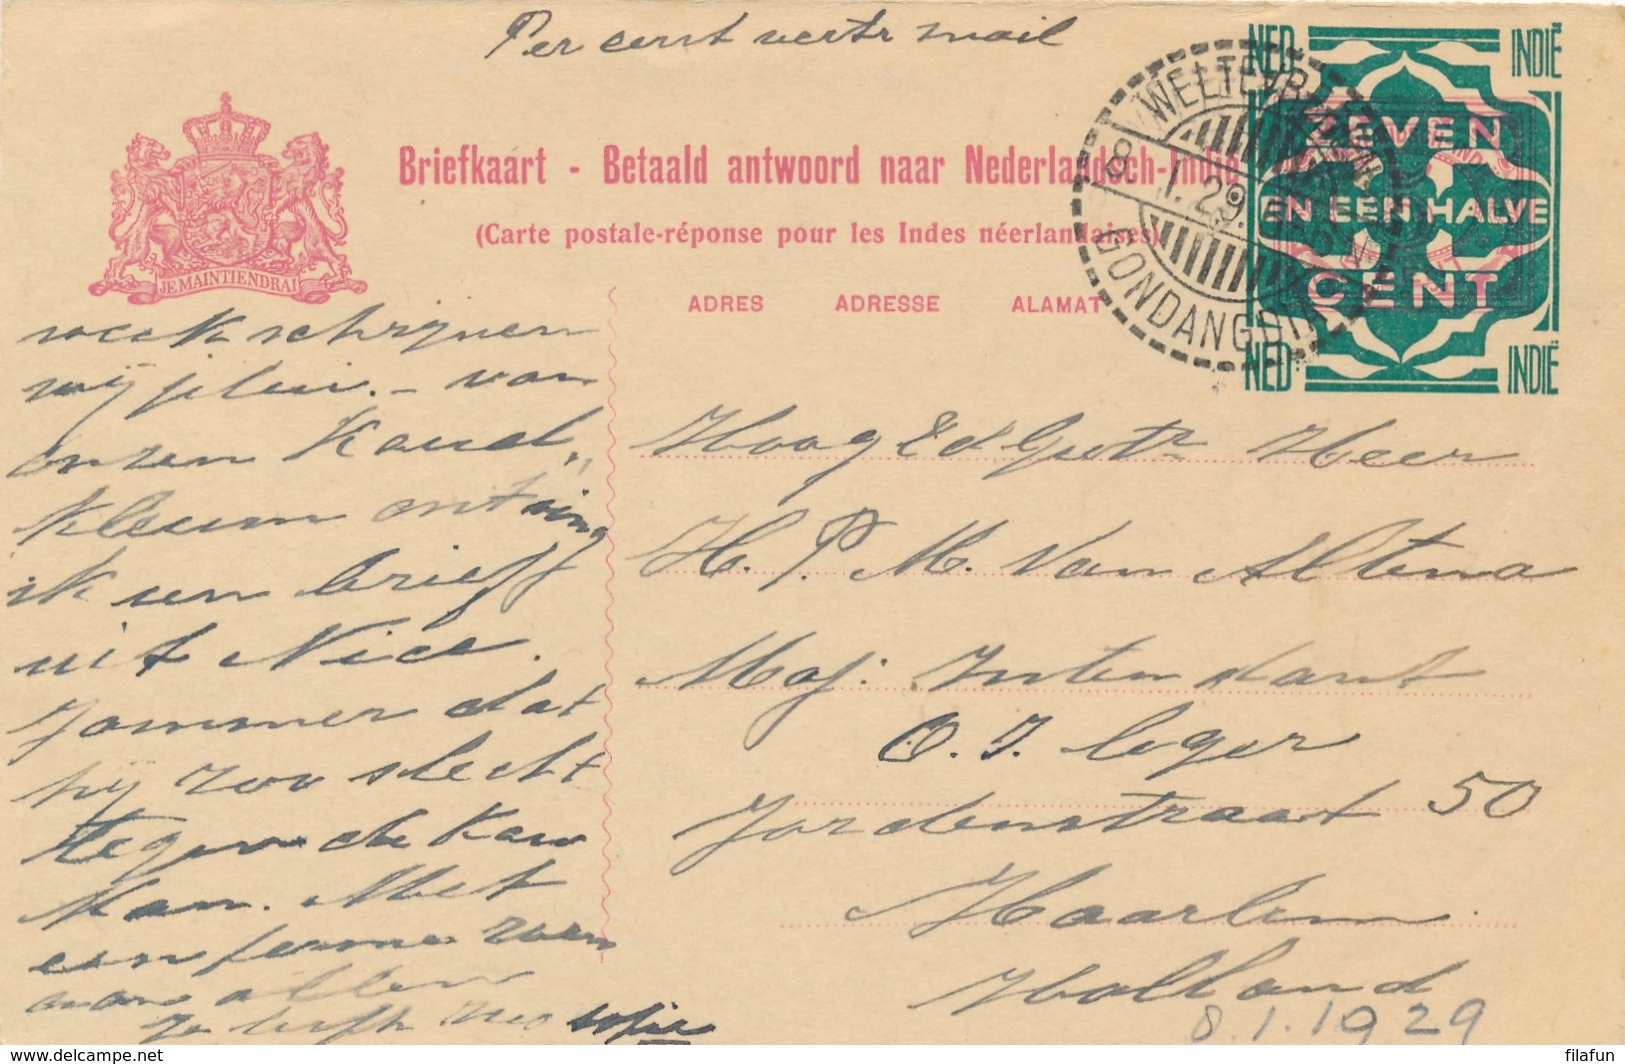 Per eerst vertr mail
NED INDIË
ZEVEN
EN EEN HALVE
CENT
NED INDIË
WELTEVREDEN
8.1.29.
GONDANGDIA
JE MAINTIENDRAI
Briefkaart - Betaald antwoord naar Nederlandsch-Indië
(Carte postale-réponse pour les Indes néerlandaises)
ADRES ADRESSE ALAMAT
week schrijven
wij . - van
onzen
ontving
ik een brieff
uit Nice.
Jammer dat
hij zoo slecht
tegen de kou
kan. Met
een ferme zoen
van allen
Je liefh
Hoog Ed Gestr Heer
H. P. M. Van Altena
Maj. Intendant
O. I. leger
Jordenstraat 50
Haarlem
Holland
8.1.1929
filafun